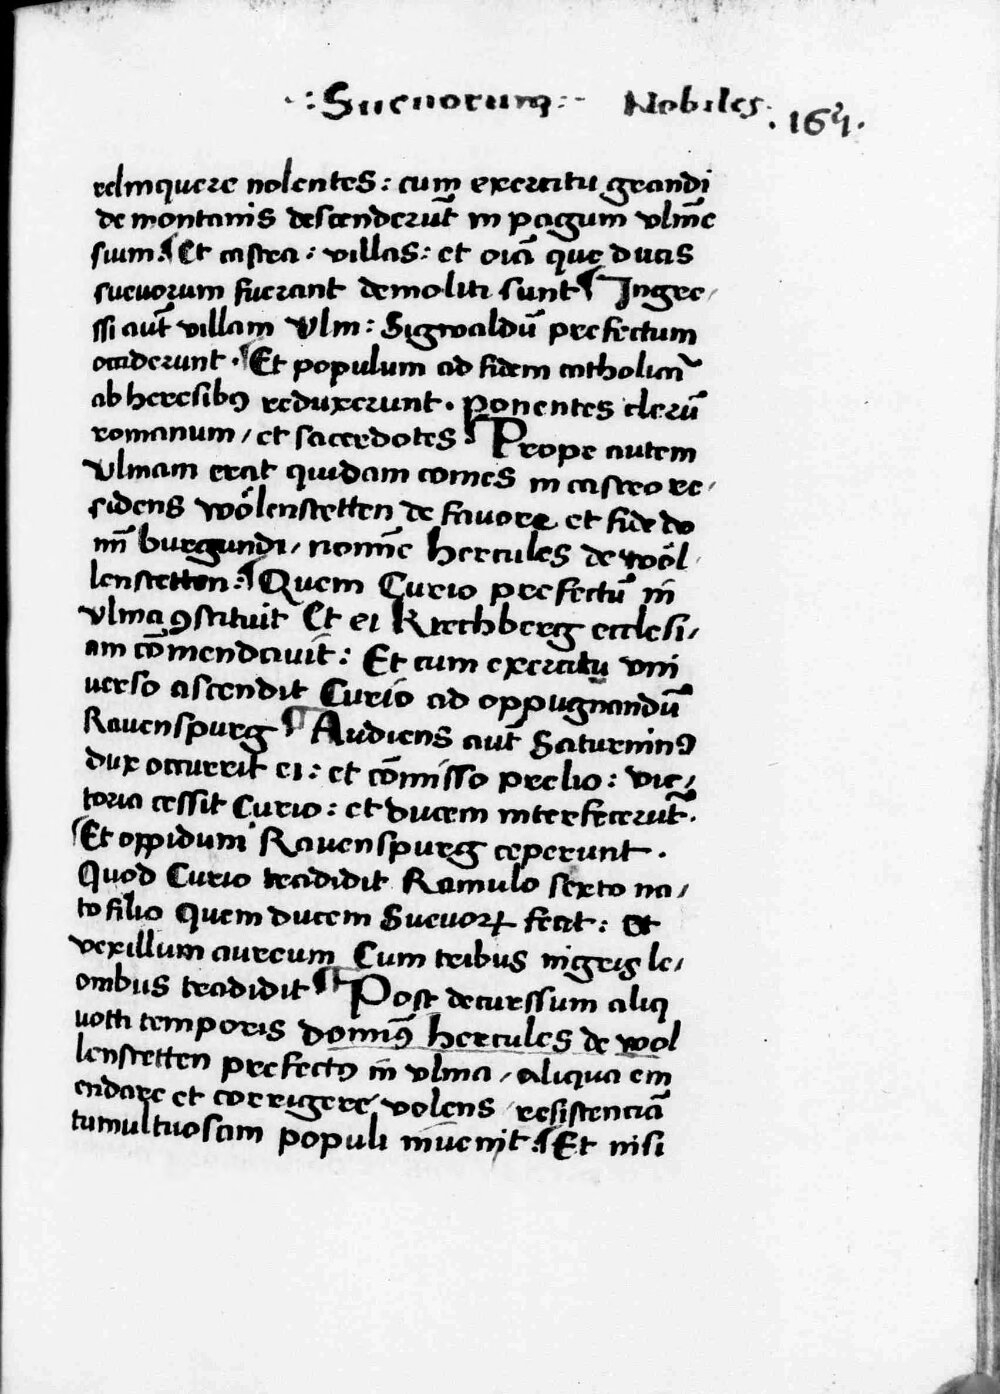 ·:Sueuorum:- Nobiles. .165.
relinquere nolentes: cum exercitu grandi
de montanis descenderūt in pagum vlm̄e
sium: ¶ Et castra: villas: et oīa que ducis
sueuorum fuerant demoliti sunt ¶ Ingre/
ssi aūt villam Vlm: Sigwaldū prefectum
occiderunt. ¶ Et populum ad fidem catholicā
ab heresibꝰ reduxerunt. ponentes clerū
romanum/ et sacerdotes ¶ Prope autem
Vlmam erat quidam comes in castro re/
sidens wőlenstetten de fauore et fide do
mī burgundi/ nomīe hercules de wől/
lenstetten: ¶ Quem Curio prefectū in
vlma ꝯstituit Et ei Kirchberg ecclesi/
am cōmendauit: Et cum exercitu vni
uerso ascendit Curio ad oppugnandū
Rauenspurg ¶ Audiens aūt Saturninꝰ
dux occurrit ei: et cōmisso prelio: vic/
toria cessit Curio: et ducem interfecerūt.
¶ Et oppidum Rauenspurg ceperunt.
Quod Curio tradidit Ramulo sexto na/
to filio Quem ducem Sueuoꝝ fecit: et
vexillum aureum Cum tribus nigris le/
onibus tradidit ¶ Post decurssum aliq
uoti temporis domīꝰ hercules de wol
lenstetten prefectꝰ in vlma/ aliqua em
endare et corrigere volens/ resistenciā
tumultuosam populi inuenit: ¶ Et nisi